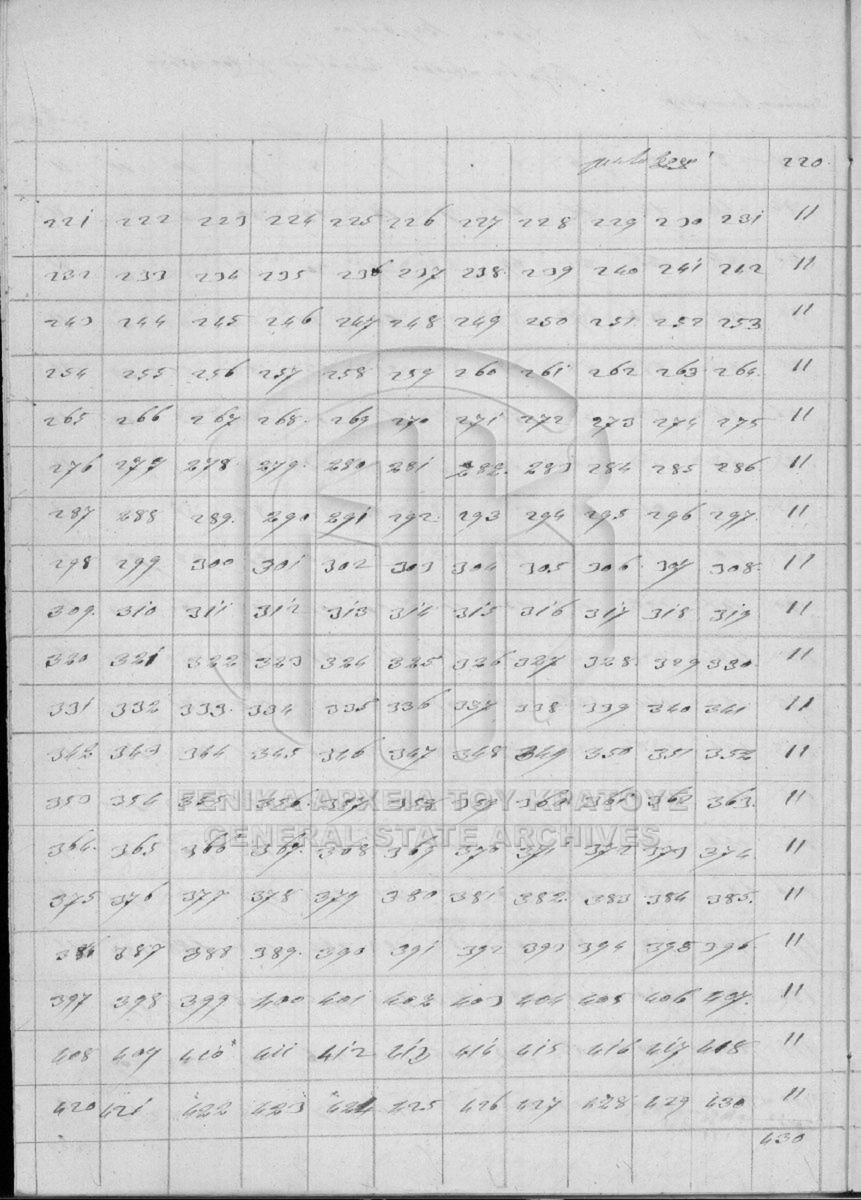 220
221 222 223 224 225 226 227 228 229 230 231 11
232 233 234 235 236 237 238 239 240 241 242 11
243 244 245 246 247 248 249 250 251 252 253 11
254 255 256 257 258 259 260 261 262 263 264 11
265 266 267 268 269 270 271 272 273 274 275 11
276 277 278 279 280 281 282 283 284 285 286 11
287 288 289 290 291 292 293 294 295 296 297 11
298 299 300 301 302 303 304 305 306 307 308 11
309 310 311 312 313 314 315 316 317 318 319 11
320 321 322 323 324 325 326 327 328 329 330 11
331 332 333 334 335 336 337 338 339 340 341 11
342 343 344 345 346 347 348 349 350 351 352 11
353 354 355 356 357 358 359 360 361 362 363 11
ΓΕΝΙΚΑ ΑΡΧΕΙΑ ΤΟΥ ΚΡΑΤΟΥΣ
GENERAL STATE ARCHIVES
364 365 366 367 368 369 370 371 372 373 374 11
375 376 377 378 379 380 381 382 383 384 385 11
386 387 388 389 390 391 392 393 394 395 396 11
397 398 399 400 401 402 403 404 405 406 407 11
408 409 410 411 412 413 414 415 416 417 418 11
420 421 422 423 424 425 426 427 428 429 430 11
430